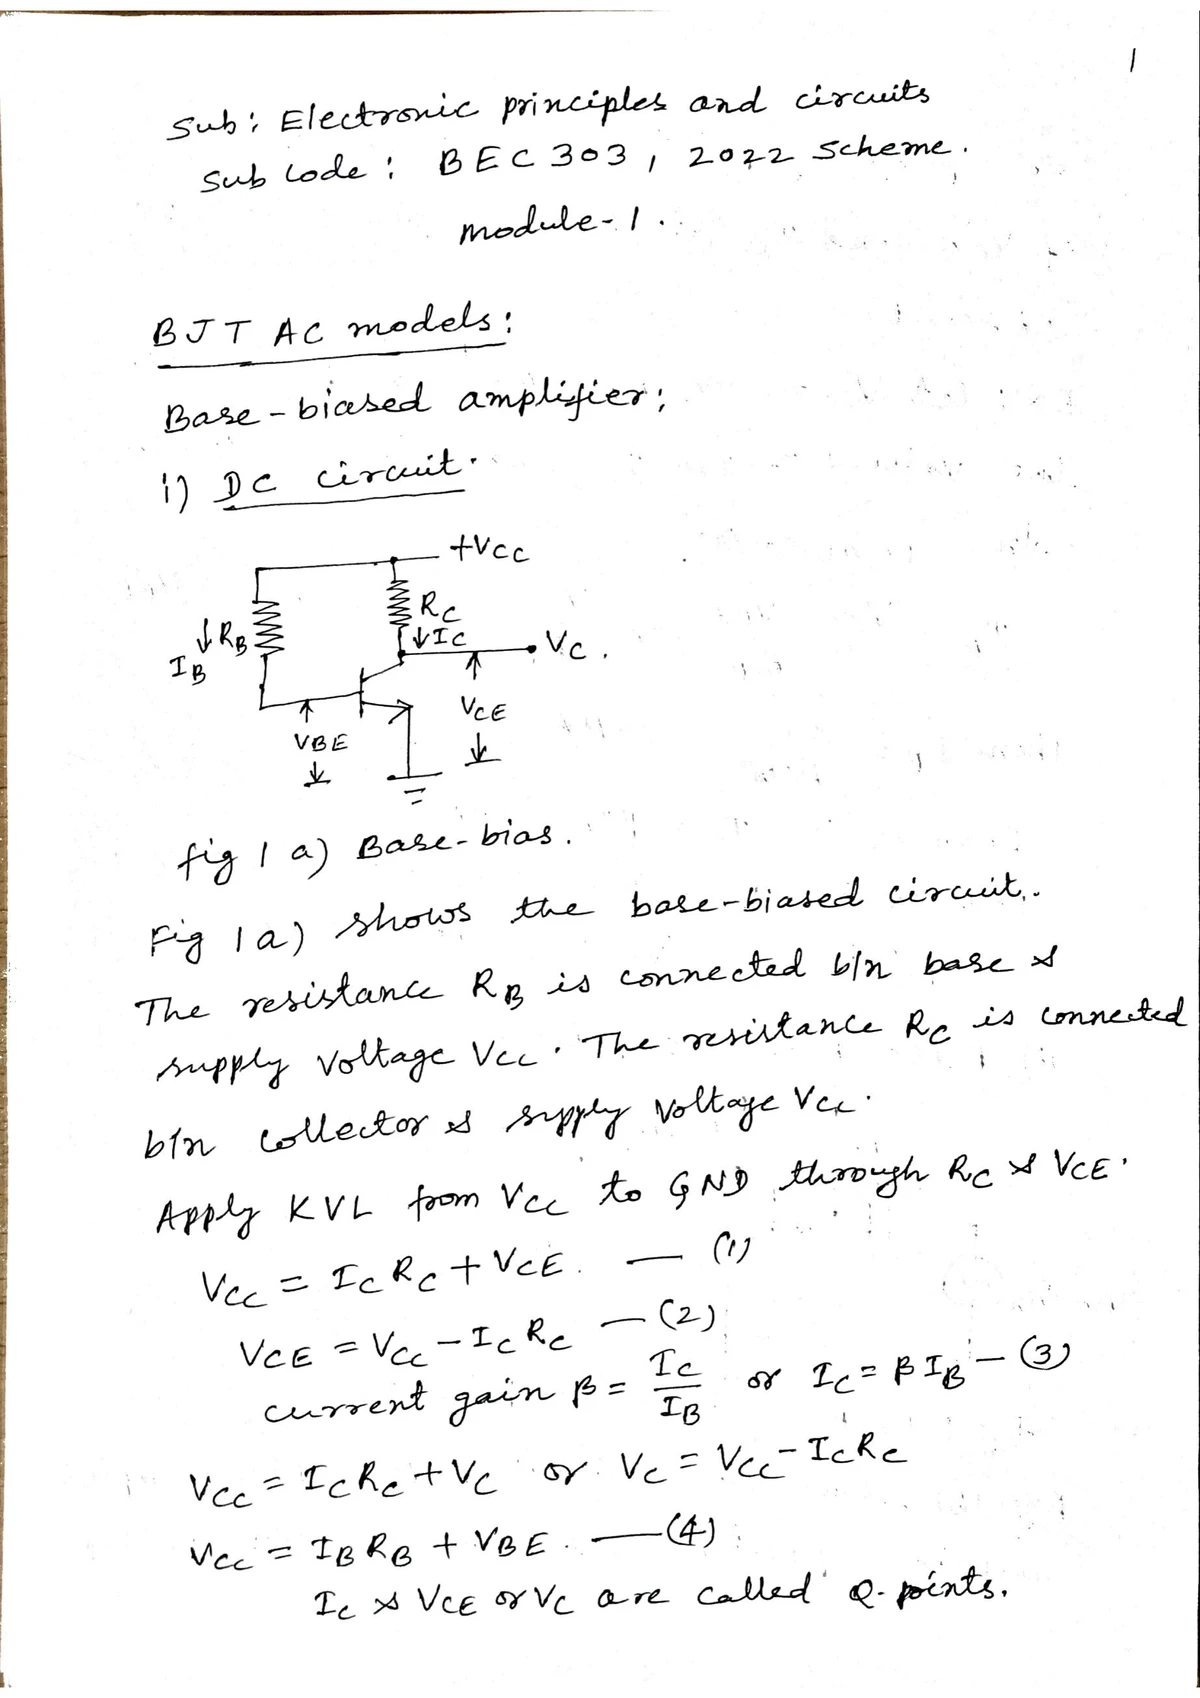 1
Sub: Electronic principles and circuits
Sub Code: BEC303, 2022 Scheme.
module-1.
BJT AC models:
Base-biased amplifier:
i) DC circuit.
+VCC
RC
↓RB
↓IC
VC.
IB
VCE
VBE
fig 1 a) Base-bias.
Fig 1a) shows the base-biased circuit.
The resistance RB is connected b/n base &
supply voltage Vcc. The resistance Rc is connected
b/n collector & supply voltage Vcc.
Apply KVL from Vcc to GND through Rc & VCE.
Vcc = IcRc + VCE. — (1)
VCE = Vcc - IcRc — (2)
current gain β = Ic/IB or Ic = βIB — (3)
Vcc = IcRc + Vc or Vc = Vcc - IcRc
Vcc = IBRB + VBE. — (4)
Ic & VCE or Vc are called Q-points.